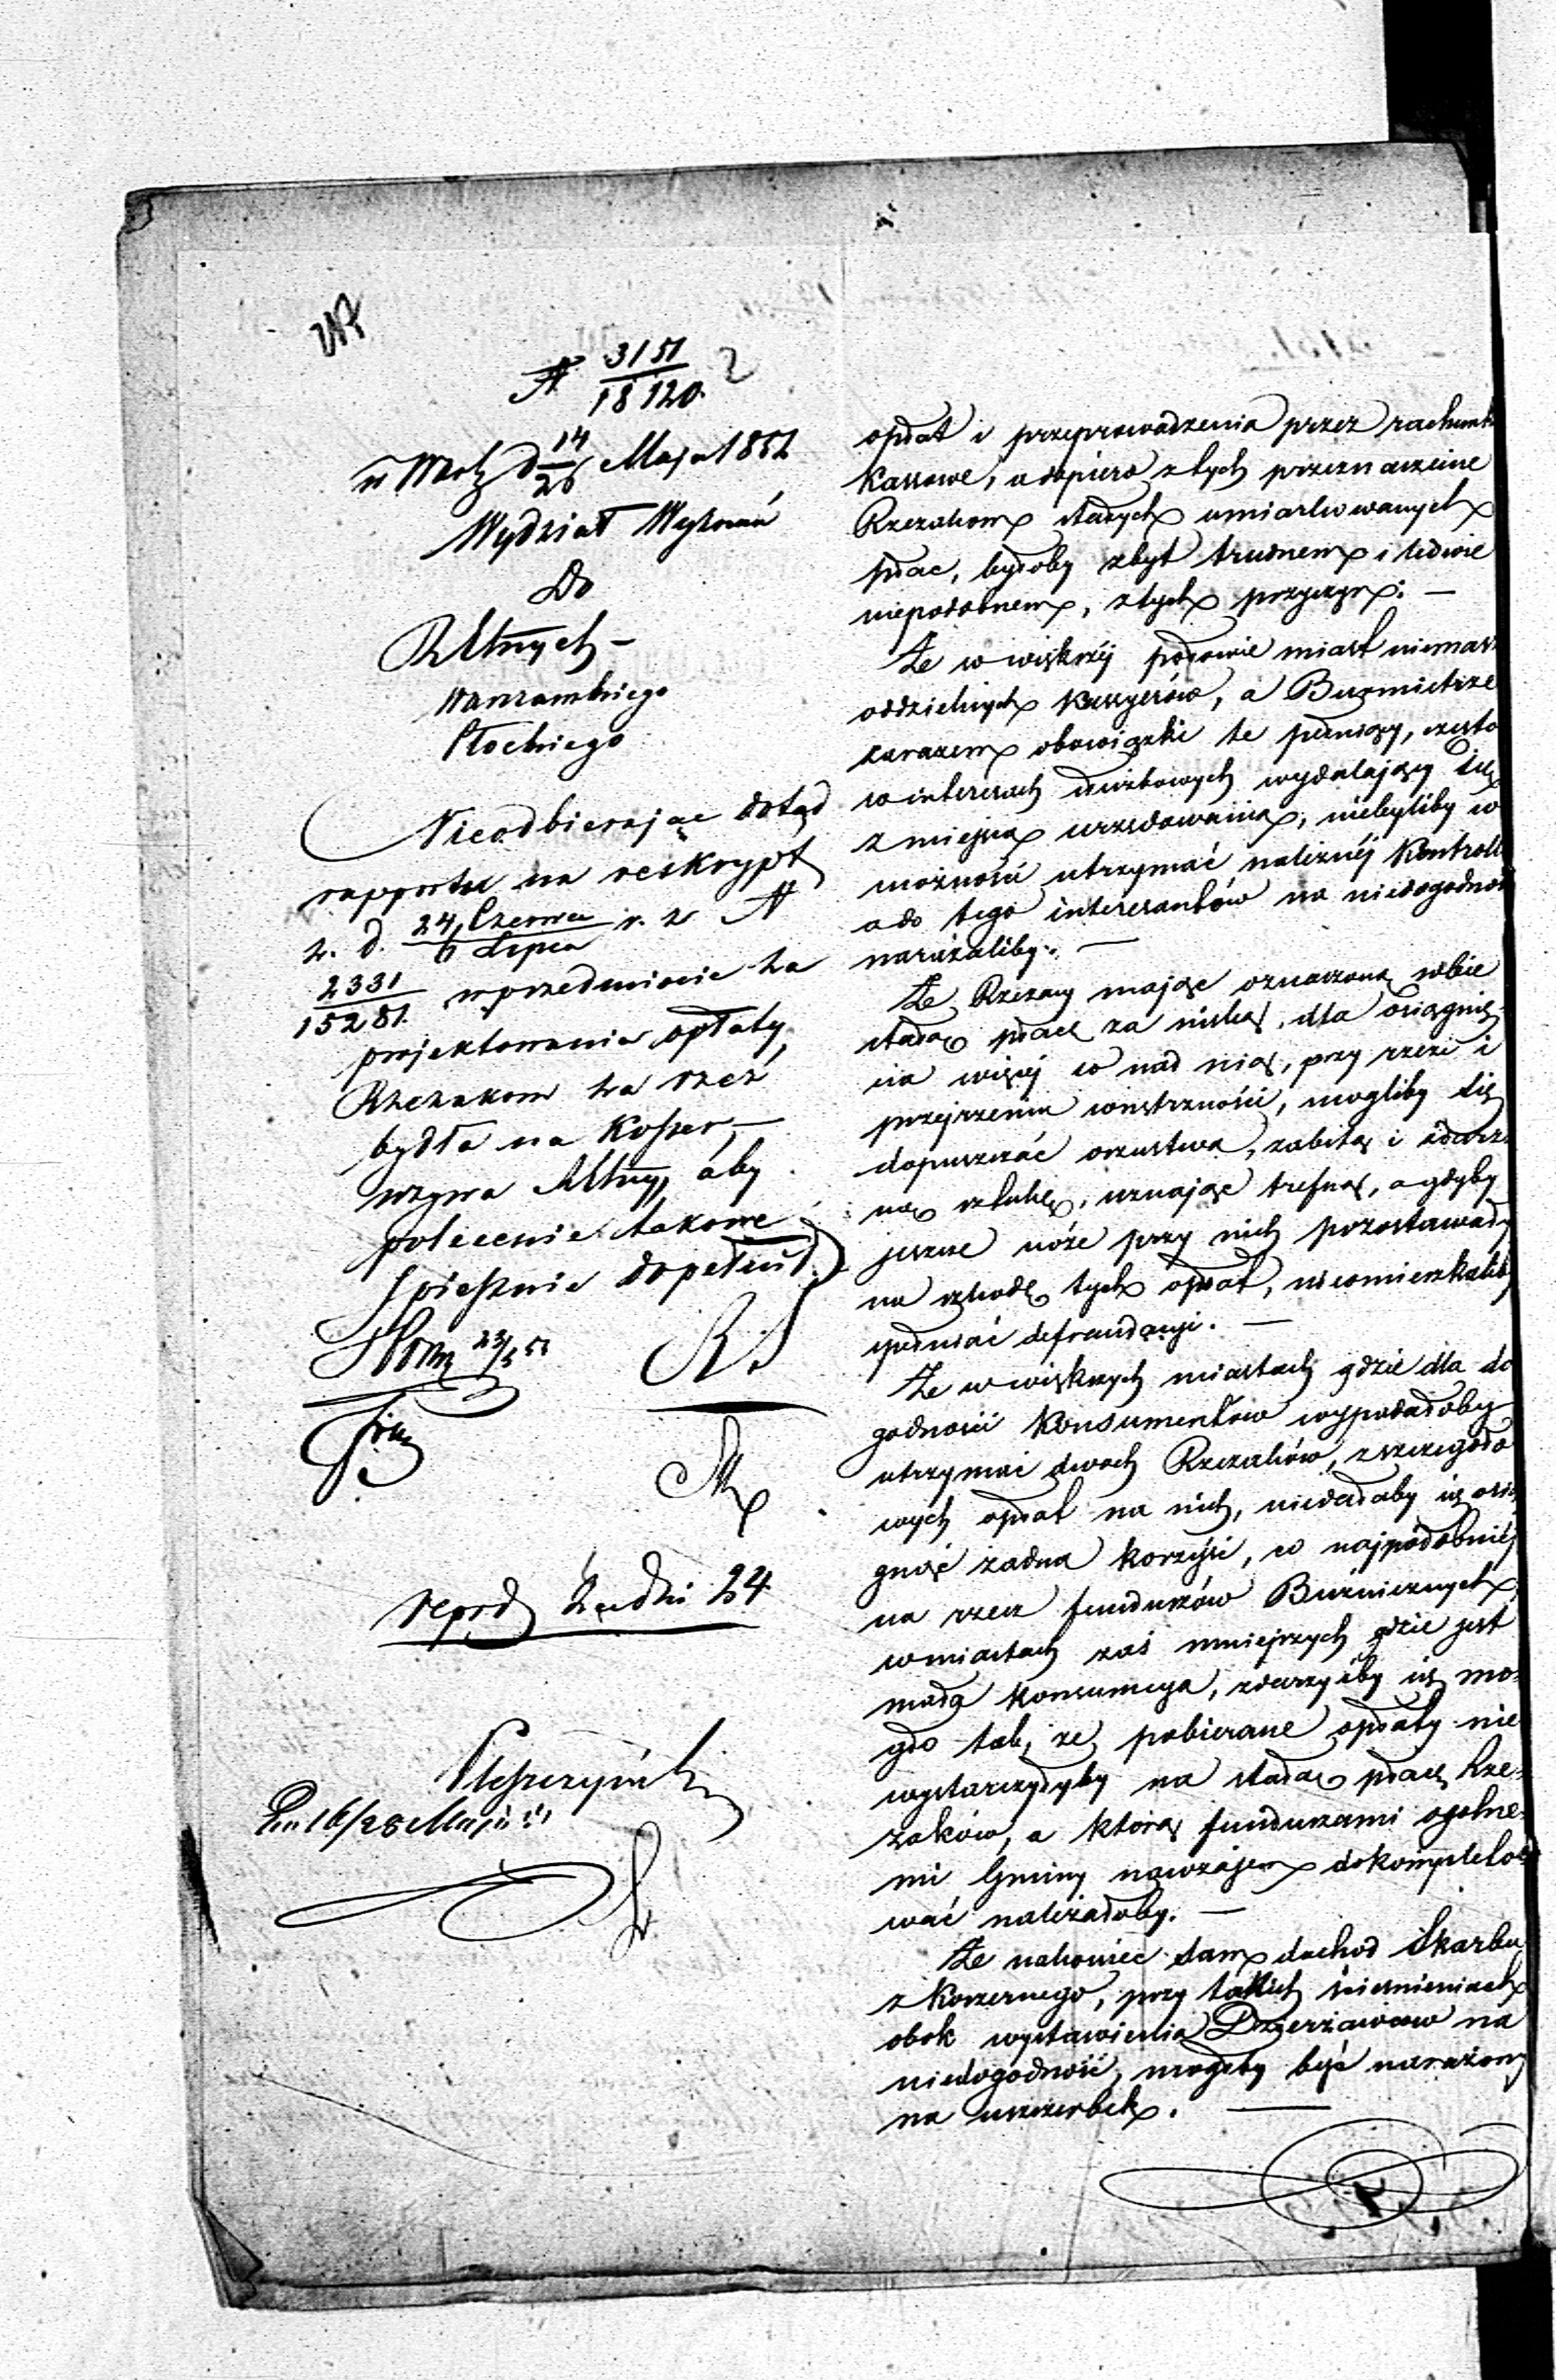 N 3151
18120. 2
w Warsz d 14/26 Maja 1851
Wydział Wyznań
Do
RGbnych –
Warszawskiego
Płockiego
Nieodbierając dotąd
rapportu na reskrypt
z. d. 24 Czerwca / 6 Lipca r. z N
2331
15281. w przedmiocie za
projektowania opłaty,
Rzezakom za rzeź
bydła na Koszer, –
wzywa aby
polecenie takowe
spiesznie dopełnił.
23/5 51
24
16/28 Maja
opłat i przeprowadzenia przez rachunki
Kassowe, a dopiero z tych przeznaczenie
Rzezakom stałych umiarkowanych
płac, byłoby zbyt trudnem i ledwie
niepodobnem, z tych przyczyn: –
Że w większéj połowie miast niemasz
oddzielnych Kassyerów, a Burmistrze
zarazem obowiązki te pełniący, często
w interesach służbowych wydalający się
z miejsca urzędowania, niebyliby w
możności utrzymać należnéj Kontrolli
a do tego interesantów na niedogodność
narażaliby. –
Że Rzezacy mając oznaczoną sobie
stałą płacę za niską, dla osiągnię-
cia więcéj co nad nią, przy rzezi i
przejrzeniu wnętrzności, mogliby się
dopuszczać oszustwa, zabitą i zdarz-
ną sztukę, uznając trefną, a gdyby
jeszcze noże przy nich pozostawały
na szkodę tych opłat, nieomieszkaliby
spełniać defraudacyi. –
Że w większych miastach gdzie dla do
godności Konsumentów wypadałoby
utrzymać dwóch Rzezaków, z szczegóło
wych opłat na nich, niedałaby się osią
gnąć żadna korzyść, co najpodobniéj
na rzecz funduszów Bużniczych,
w miastach zaś mniejszych gdzie jest
mała konsumcya, zdarzyćby się mo-
gło tak, że pobierane opłaty nie
wystarczyłyby na stałą płacę Rze-
zaków, a którą funduszami ogólne-
mi Gminy nawzajem dokompleto
wać należałoby. –
Że nakoniec sam dochod Skarbu
z Koszernego, przy takich ścieśnieniach
obok wystawienia Dzierżawców na
niedogodność, mógłby być narażony
na uszczerbek. –